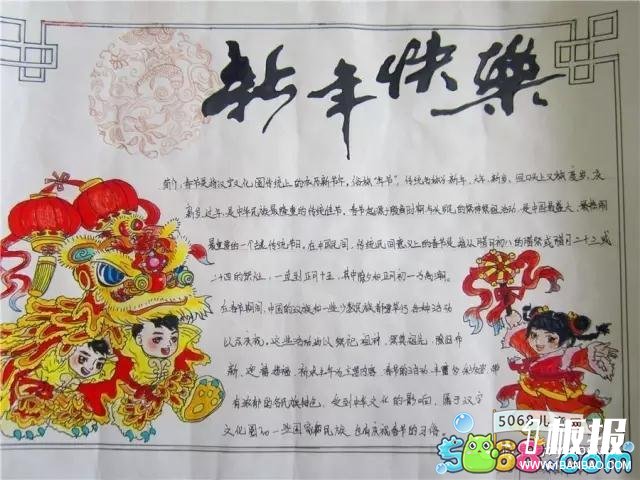 新年快樂
春节是指汉字文化圈传统上的农历新年,俗称"春节",传统名称为新年、大年、新岁,但口头上又称度岁、庆
新岁、过年,是中华民族最隆重的传统佳节。春节起源于殷商时期年头岁尾的祭神祭祖活动,是中国最盛大、最热闹
最重要的一个古老传统节日。在中国民间,传统民间意义上的春节是指从腊月初八的腊祭或腊月二十三或
二十四的祭灶,一直到正月十五,其中除夕和正月初一为高潮。
在春节期间,中国的汉族和一些少数民族都要举行各种活动
以示庆祝。这些活动均以祭祀祖神、祭奠祖先、除旧布
新、迎禧接福、祈求丰年为主要内容。春节的活动丰富多彩,带
有浓郁的各民族特色。受到中华文化的影响,属于汉字
文化圈的一些国家和民族也有庆祝春节的习俗。
5068儿童网
5068.com
板报
WWW.1BANBAO.COM